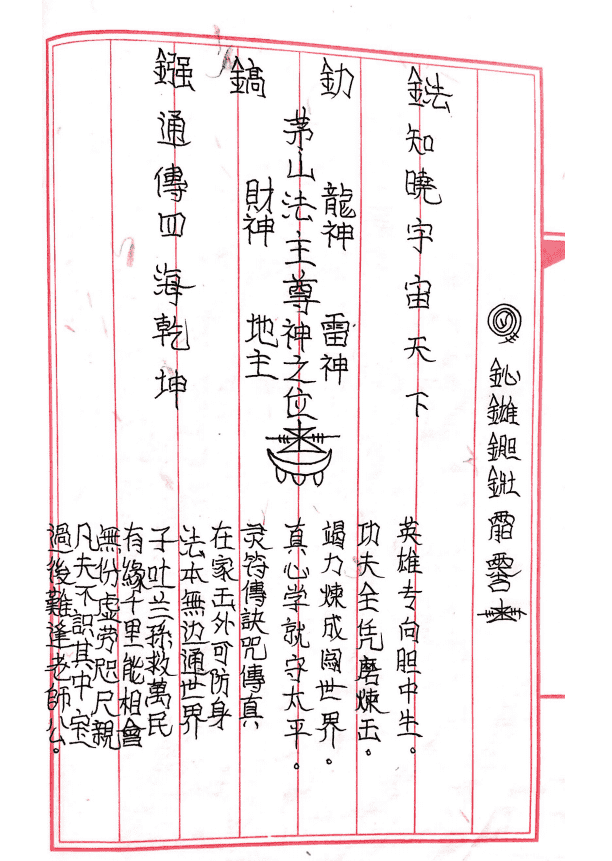 鍅知曉宇宙天下
釛
龍神 雷神
茅山法主尊神之位
鎬
財神 地主
鏹通傳四海乾坤
英雄专向胆中生。
功夫全凭磨煉出。
竭力煉成闯世界。
真心学就守太平。
灵符傳訣咒傳真
在家出外可防身
法本無边通世界
子吐兰孫救萬民
有緣千里能相會
無份虚劳咫尺親
凡夫不識其中宝
過後難逢老師公。